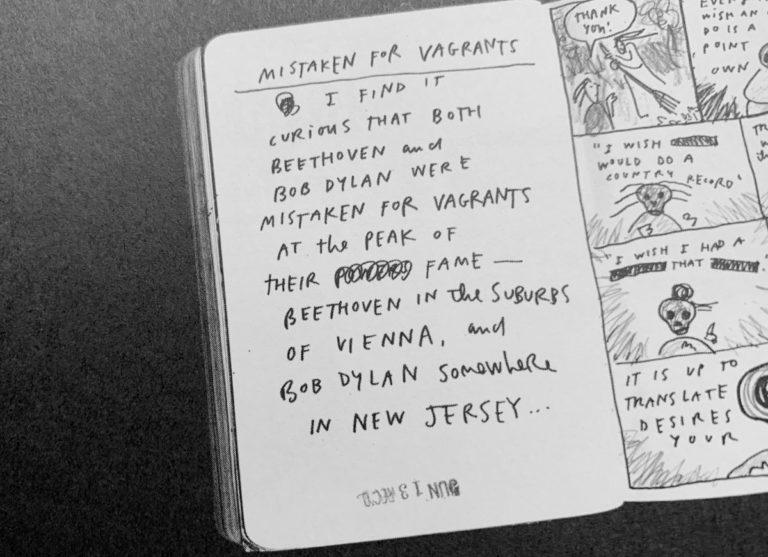 MISTAKEN FOR VAGRANTS
I FIND IT
CURIOUS THAT BOTH
BEETHOVEN and
BOB DYLAN WERE
MISTAKEN FOR VAGRANTS
AT the PEAK OF
THEIR FAME —
BEETHOVEN IN the SUBURBS
OF VIENNA, and
BOB DYLAN somewhere
IN NEW JERSEY...
JUN 13 REC'D
THANK
YOU!
WISH AN
DO IS A
POINT
OWN
"I WISH
WOULD DO A
COUNTRY RECORD"
"I WISH I HAD A
THAT
IT IS UP TO
TRANSLATE
DESIRES
YOUR